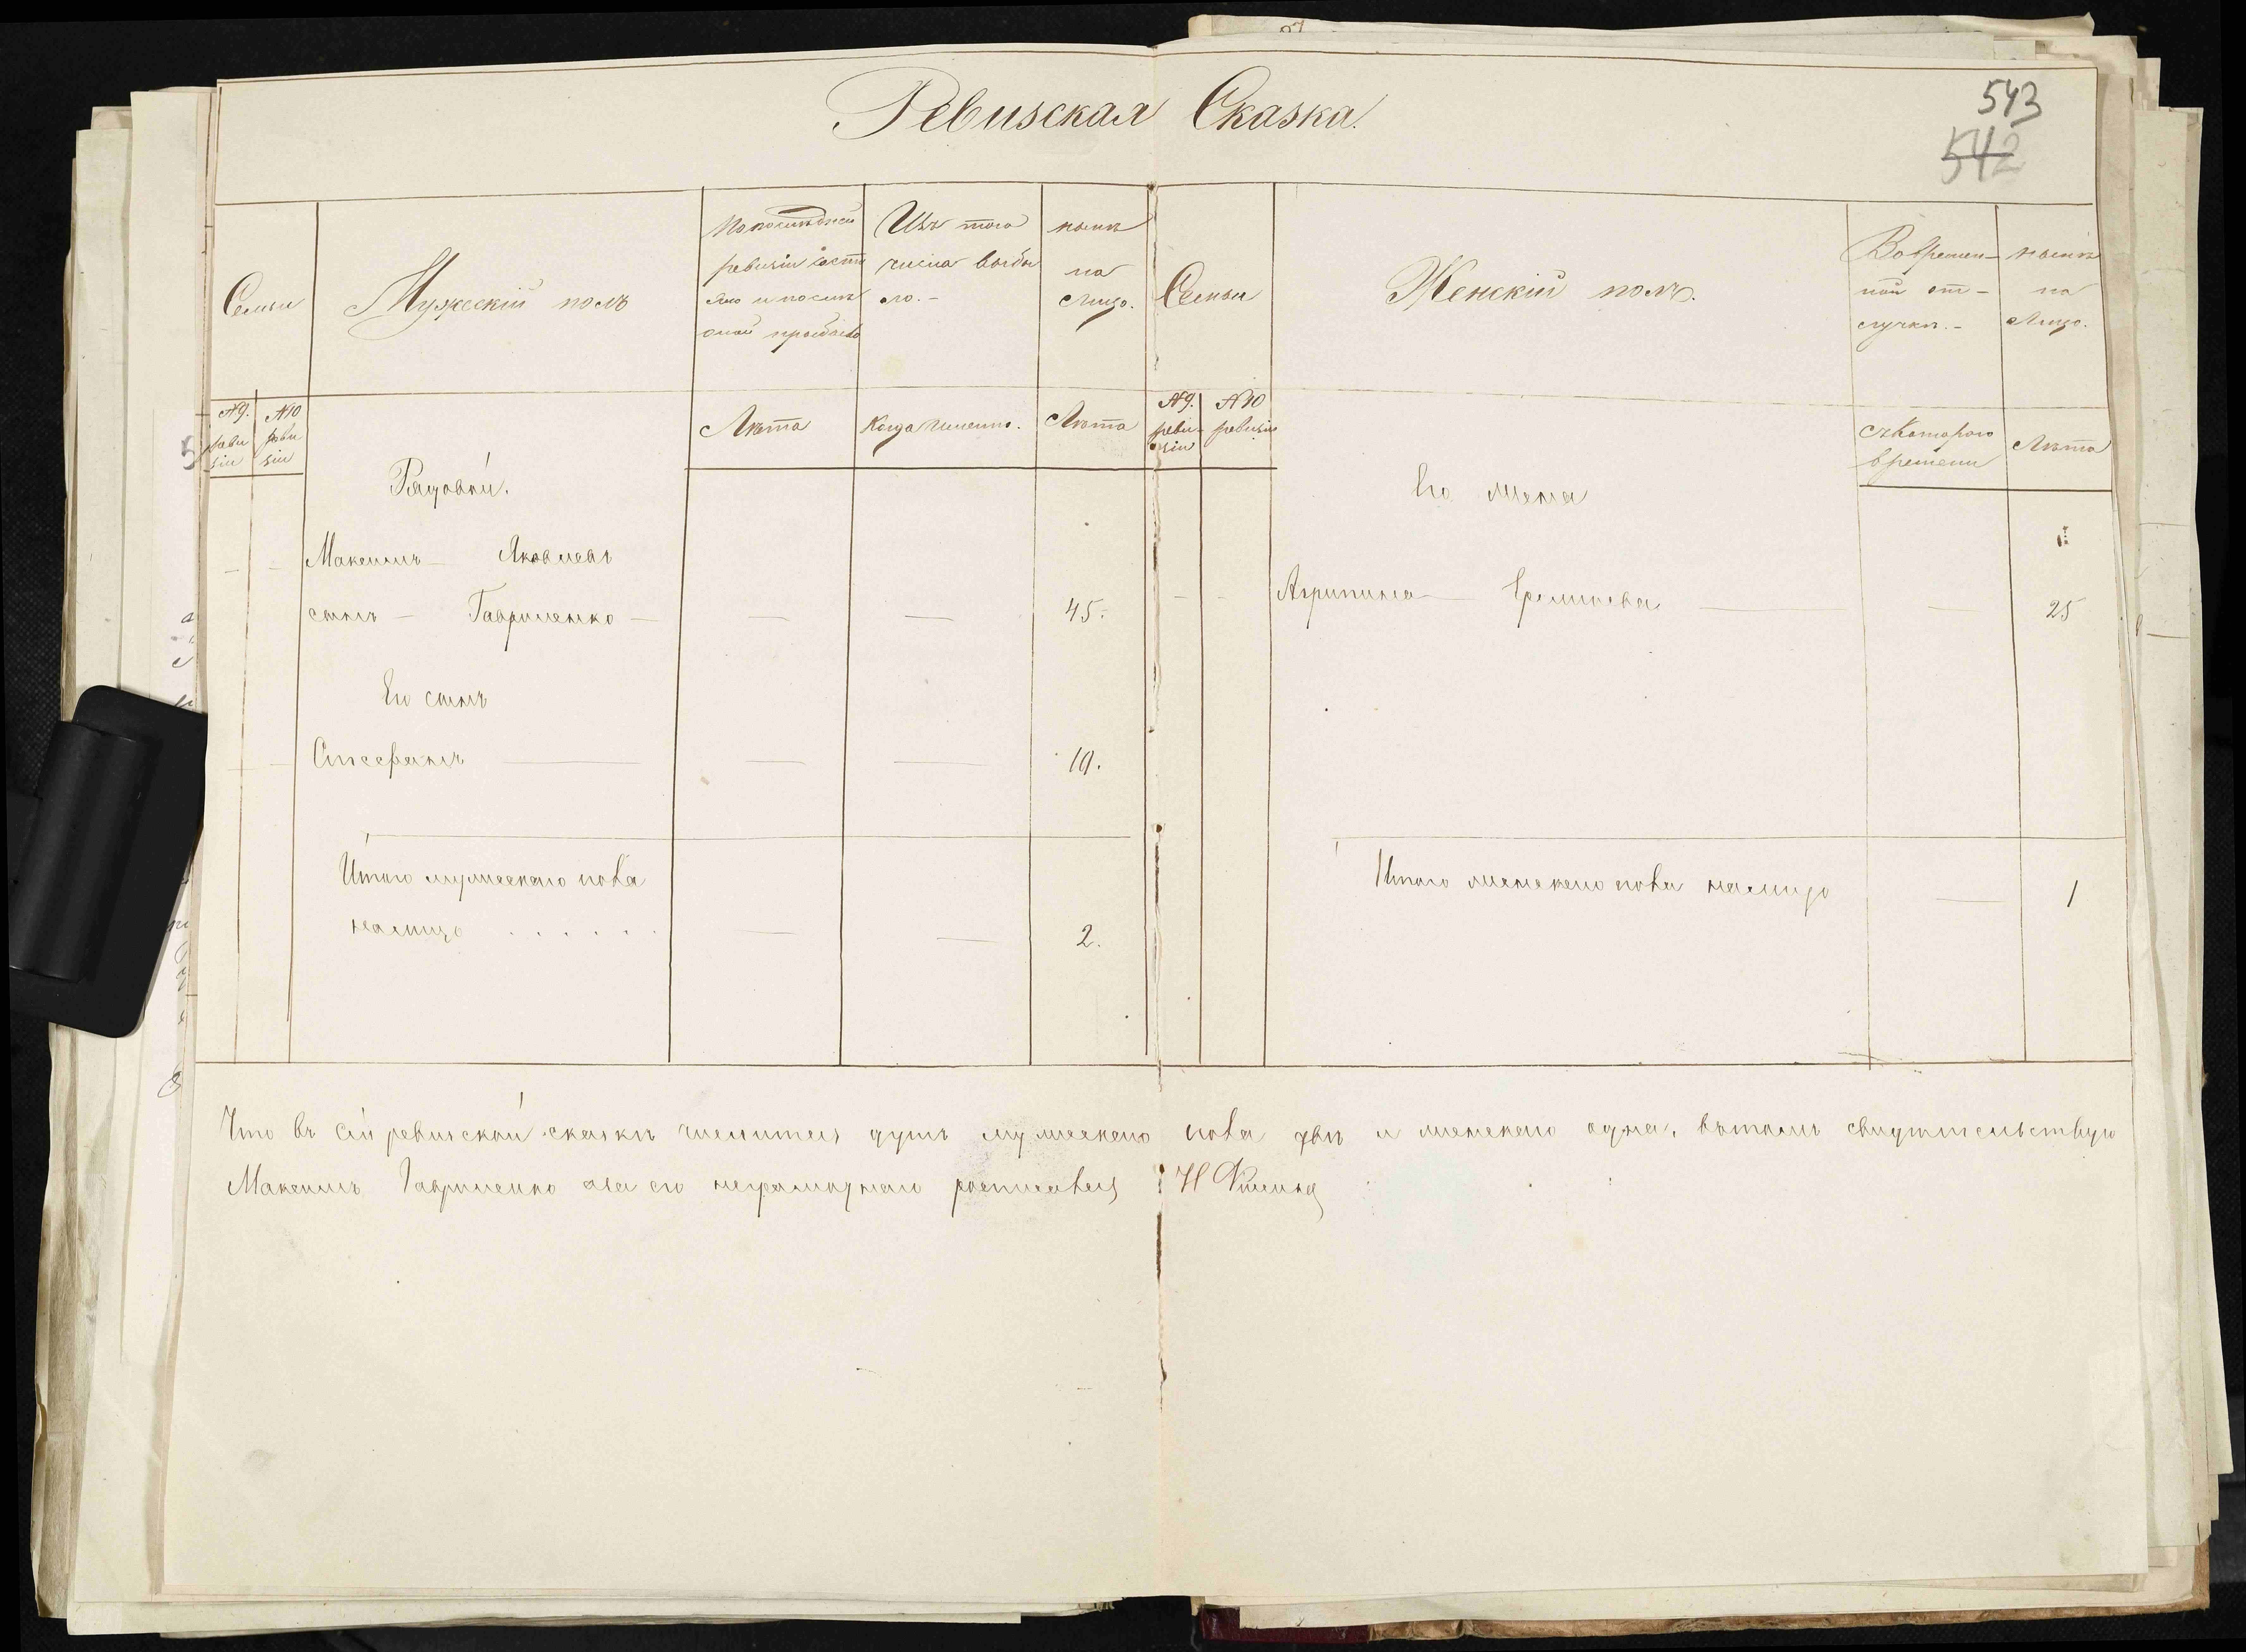 543
542
Ревизская Сказка.
Семьи
Мужескій полъ
По послѣдней
ревизіи состо
яло и послѣ
оной прибыло
Изъ того
числа выбы
ло. -
нынѣ
на
лицо.
Семьи
Женскій полъ.
Во времен-
ной от-
лучкѣ. -
нынѣ
на
Лицо.
№ 9. реви зіи
№ 10 реви зіи
Лѣта
Когда именно.
Лѣта
№ 9. реви- зіи
№ 10 ревизіи
съ Котораго
времени
Лѣта
Рядовый.
Максимъ - Яковлевъ
сынъ - Гавриленко - — — 45.
Его сынъ
Стефанъ — — — 10.
Итого мужескаго пола
налицо . . . . . . — — 2.
Его жена
Агрипина — — — 25
Итого женскаго пола налицо — 1
Что въ сей ревизской сказкѣ числится душъ мужескаго пола двѣ и женскаго одна, въ томъ свидѣтельствую
Максимъ Гавриленко а за его неграмотнаго росписався